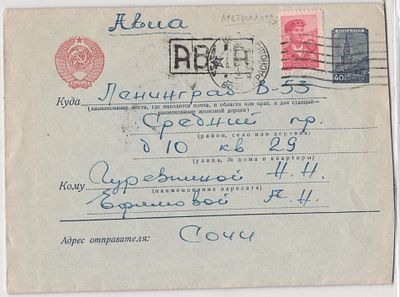 Авиа
АВИА
40
Куда Ленинград В-53
(наименование места, где находится почта, и области или края, а для станций—
наименование железной дороги)
Средний пр.
(район, село или деревня)
д 10 кв 29
(улица, № дома и квартиры)
Кому Гуревичной Н.Н.
(наименование адресата)
Ефимовой А.Н.
Адрес отправителя: Сочи